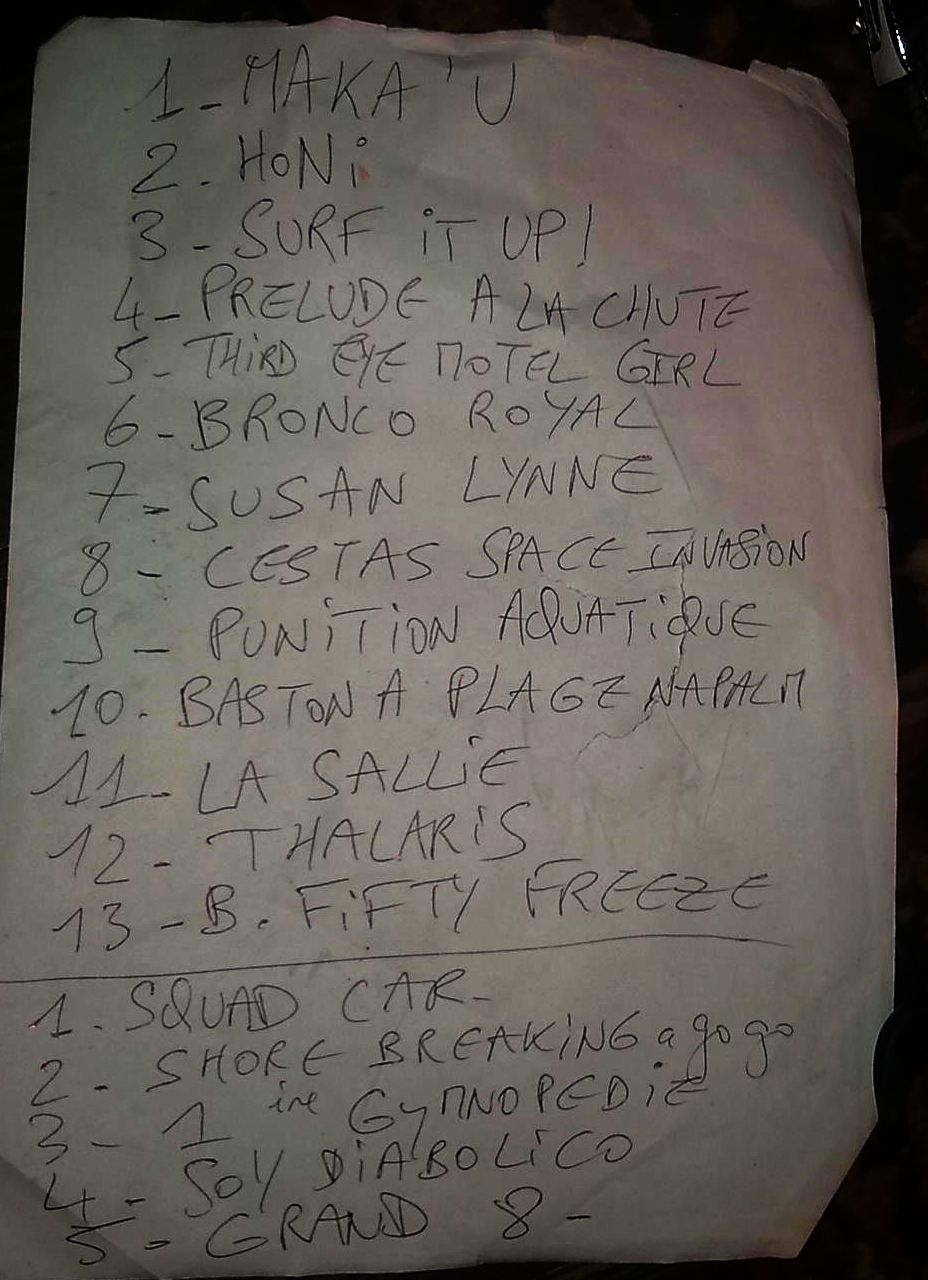 1 - MAKA'U
2. HONi
3 - SURF iT UP!
4 - PRELUDE A LA CHUTE
5 - THiRD EYE MOTEL GIRL
6 - BRONCO ROYAL
7 - SUSAN LYNNE
8 - CESTAS SPACE INVASiON
9 - PUNiTiON AQUATiQUE
10. BASTON A PLAGE NAPALM
11 - LA SALLiE
12 - THALARiS
13 - B. FiFTY FREEZE
1. SQUAD CAR -
2 - SHORE BREAKiNG a go go
3 - 1 ire GyMNOPEDiE
4 - SOY DiABOLiCO
5 - GRAND 8 -